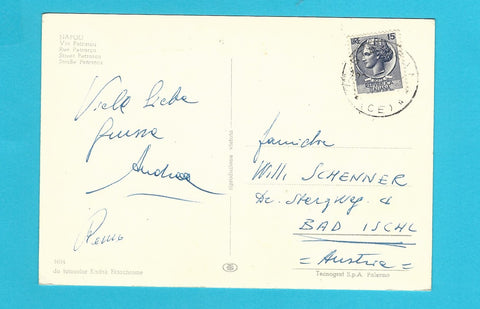 NAPOLI
Via Petrarca
Rue Petrarca
Street Petrarca
Straße Petrarca
Viele liebe
Grüsse
Andrea
1614
da fotocolor Kodak Ektachrome
riproduzione vietata
15
(CE)
Familie
Willi SCHENNER
Dr. Stergweg 4
BAD ISCHL
= Austria =
Tecnograf S.p.A. Palermo